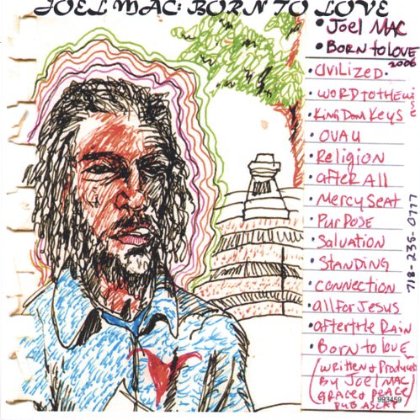 JOEL MAC: BORN TO LOVE
• Joel MAC
• Born to love
2006
• CIVILIZED
• WORD TO THE WISE
• KingDom Keys
• OVAU
• Religion
• after All
• Mercy Seat
• PURPOSE
• Salvation
• STANDING
• CONNECTION
• all for Jesus
• after the Rain
• Born to love
written & Produced
By Joel MAC
GRACE & PEACE
PUB ASCAP
993459
718-235-0977